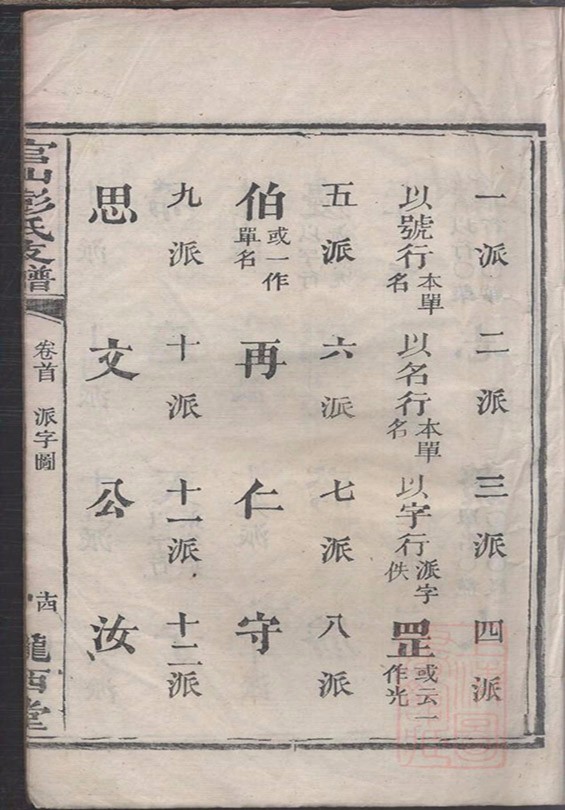 一派 二派 三派 四派
以號行本單名 以名行本單名 以字行派字佚 罡或云一作光
五派 六派 七派 八派
伯或一作單名 再 仁 守
九派 十派 十一派 十二派
思 文 公 汝
官山彭氏支譜 卷首 派字圖 龍西堂